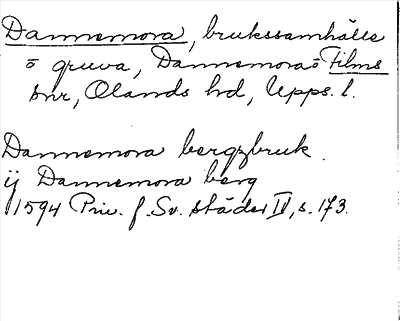 Dannemora, brukssamhälle
o gruva, Dannemora o Films
snr, Olands hd, Upps. l.
Dannemora bergzbruk
ij Dannemora berg
1594 Priv. f. Sv. städer II, s. 173.